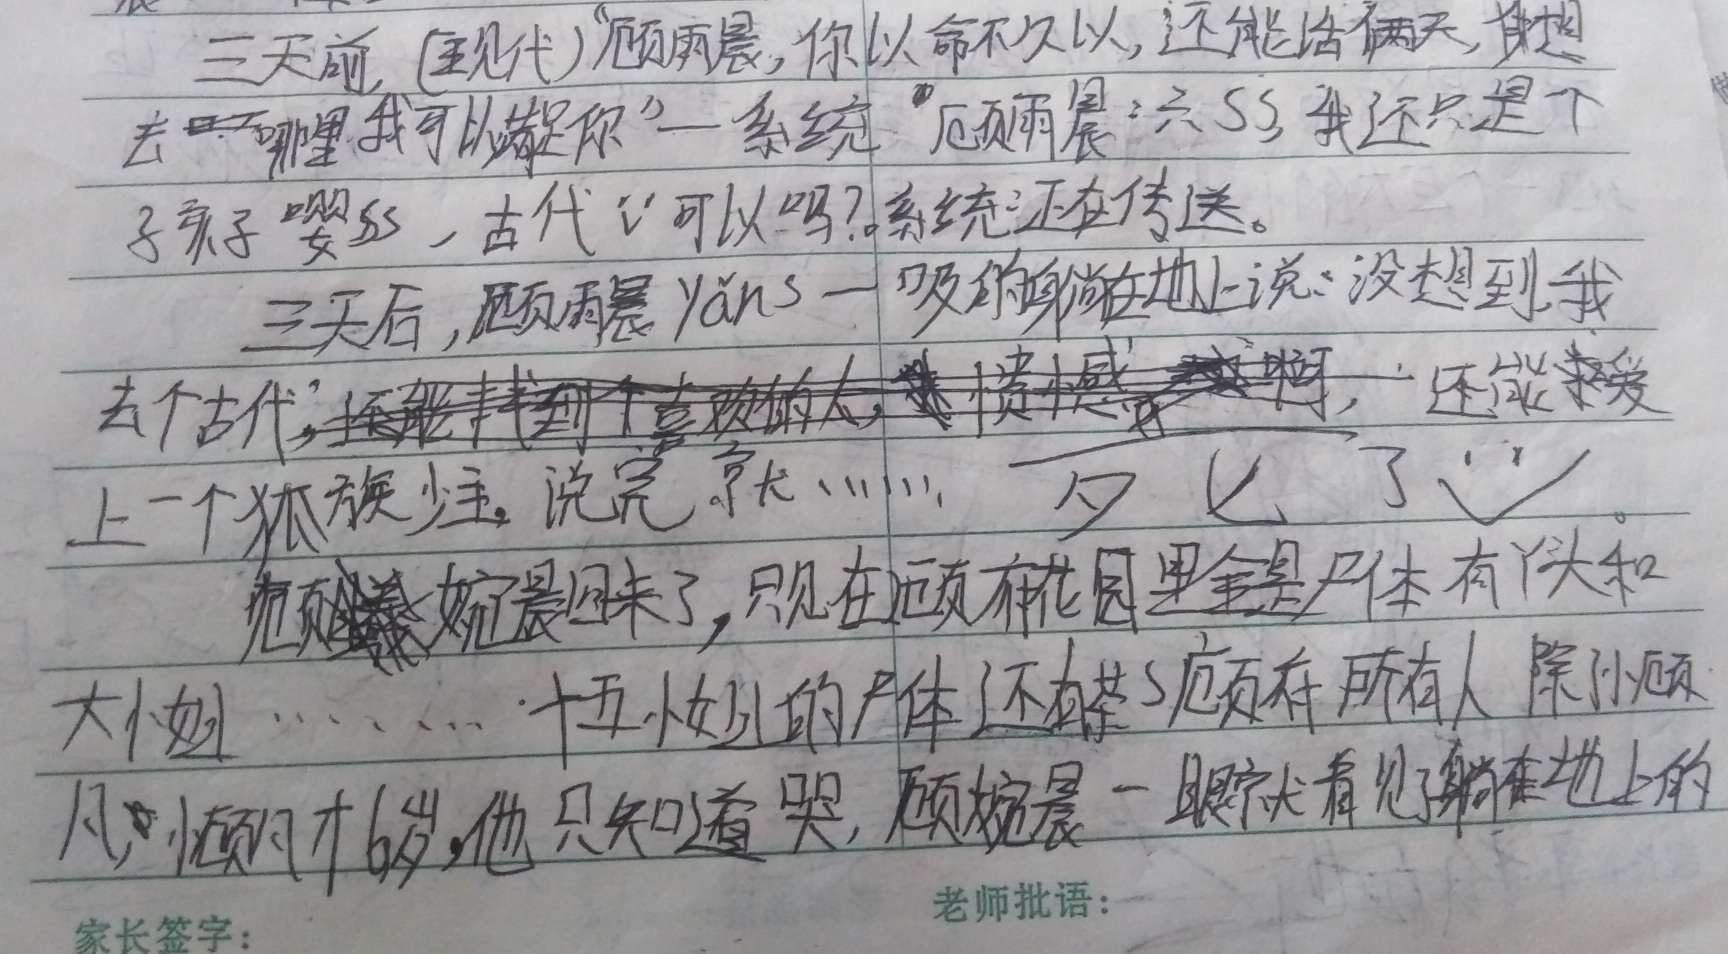 三天前,(现代)"顾雨晨,你以命不久以,还能活俩天,想
去哪里我可以满足你"一系统 顾雨晨:六SS,我还只是个
孩子嘤ss,古代可以吗?系统:还在传送。
三天后,顾雨晨yǎns一吸的躺在地上说:没想到,我
去个古代,还能爱
上一个狐族少主。说完就…… 死了
顾婉晨回来了,只见在顾府花园里全是尸体有丫头和
大小姐………十五小姐的尸体还有茶S顾府所有人除小顾
凡,小顾凡才6岁,他只知道哭,顾婉晨一眼就看见了躺在地上的
家长签字:
老师批语: